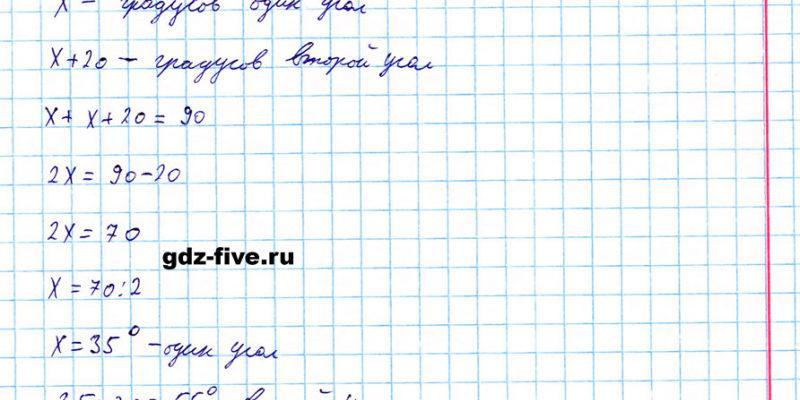 x – градусов один угол
x+20 – градусов второй угол
x + x + 20 = 90
2x = 90–20
2x = 70
gdz-five.ru
x = 70:2
x = 35° – один угол